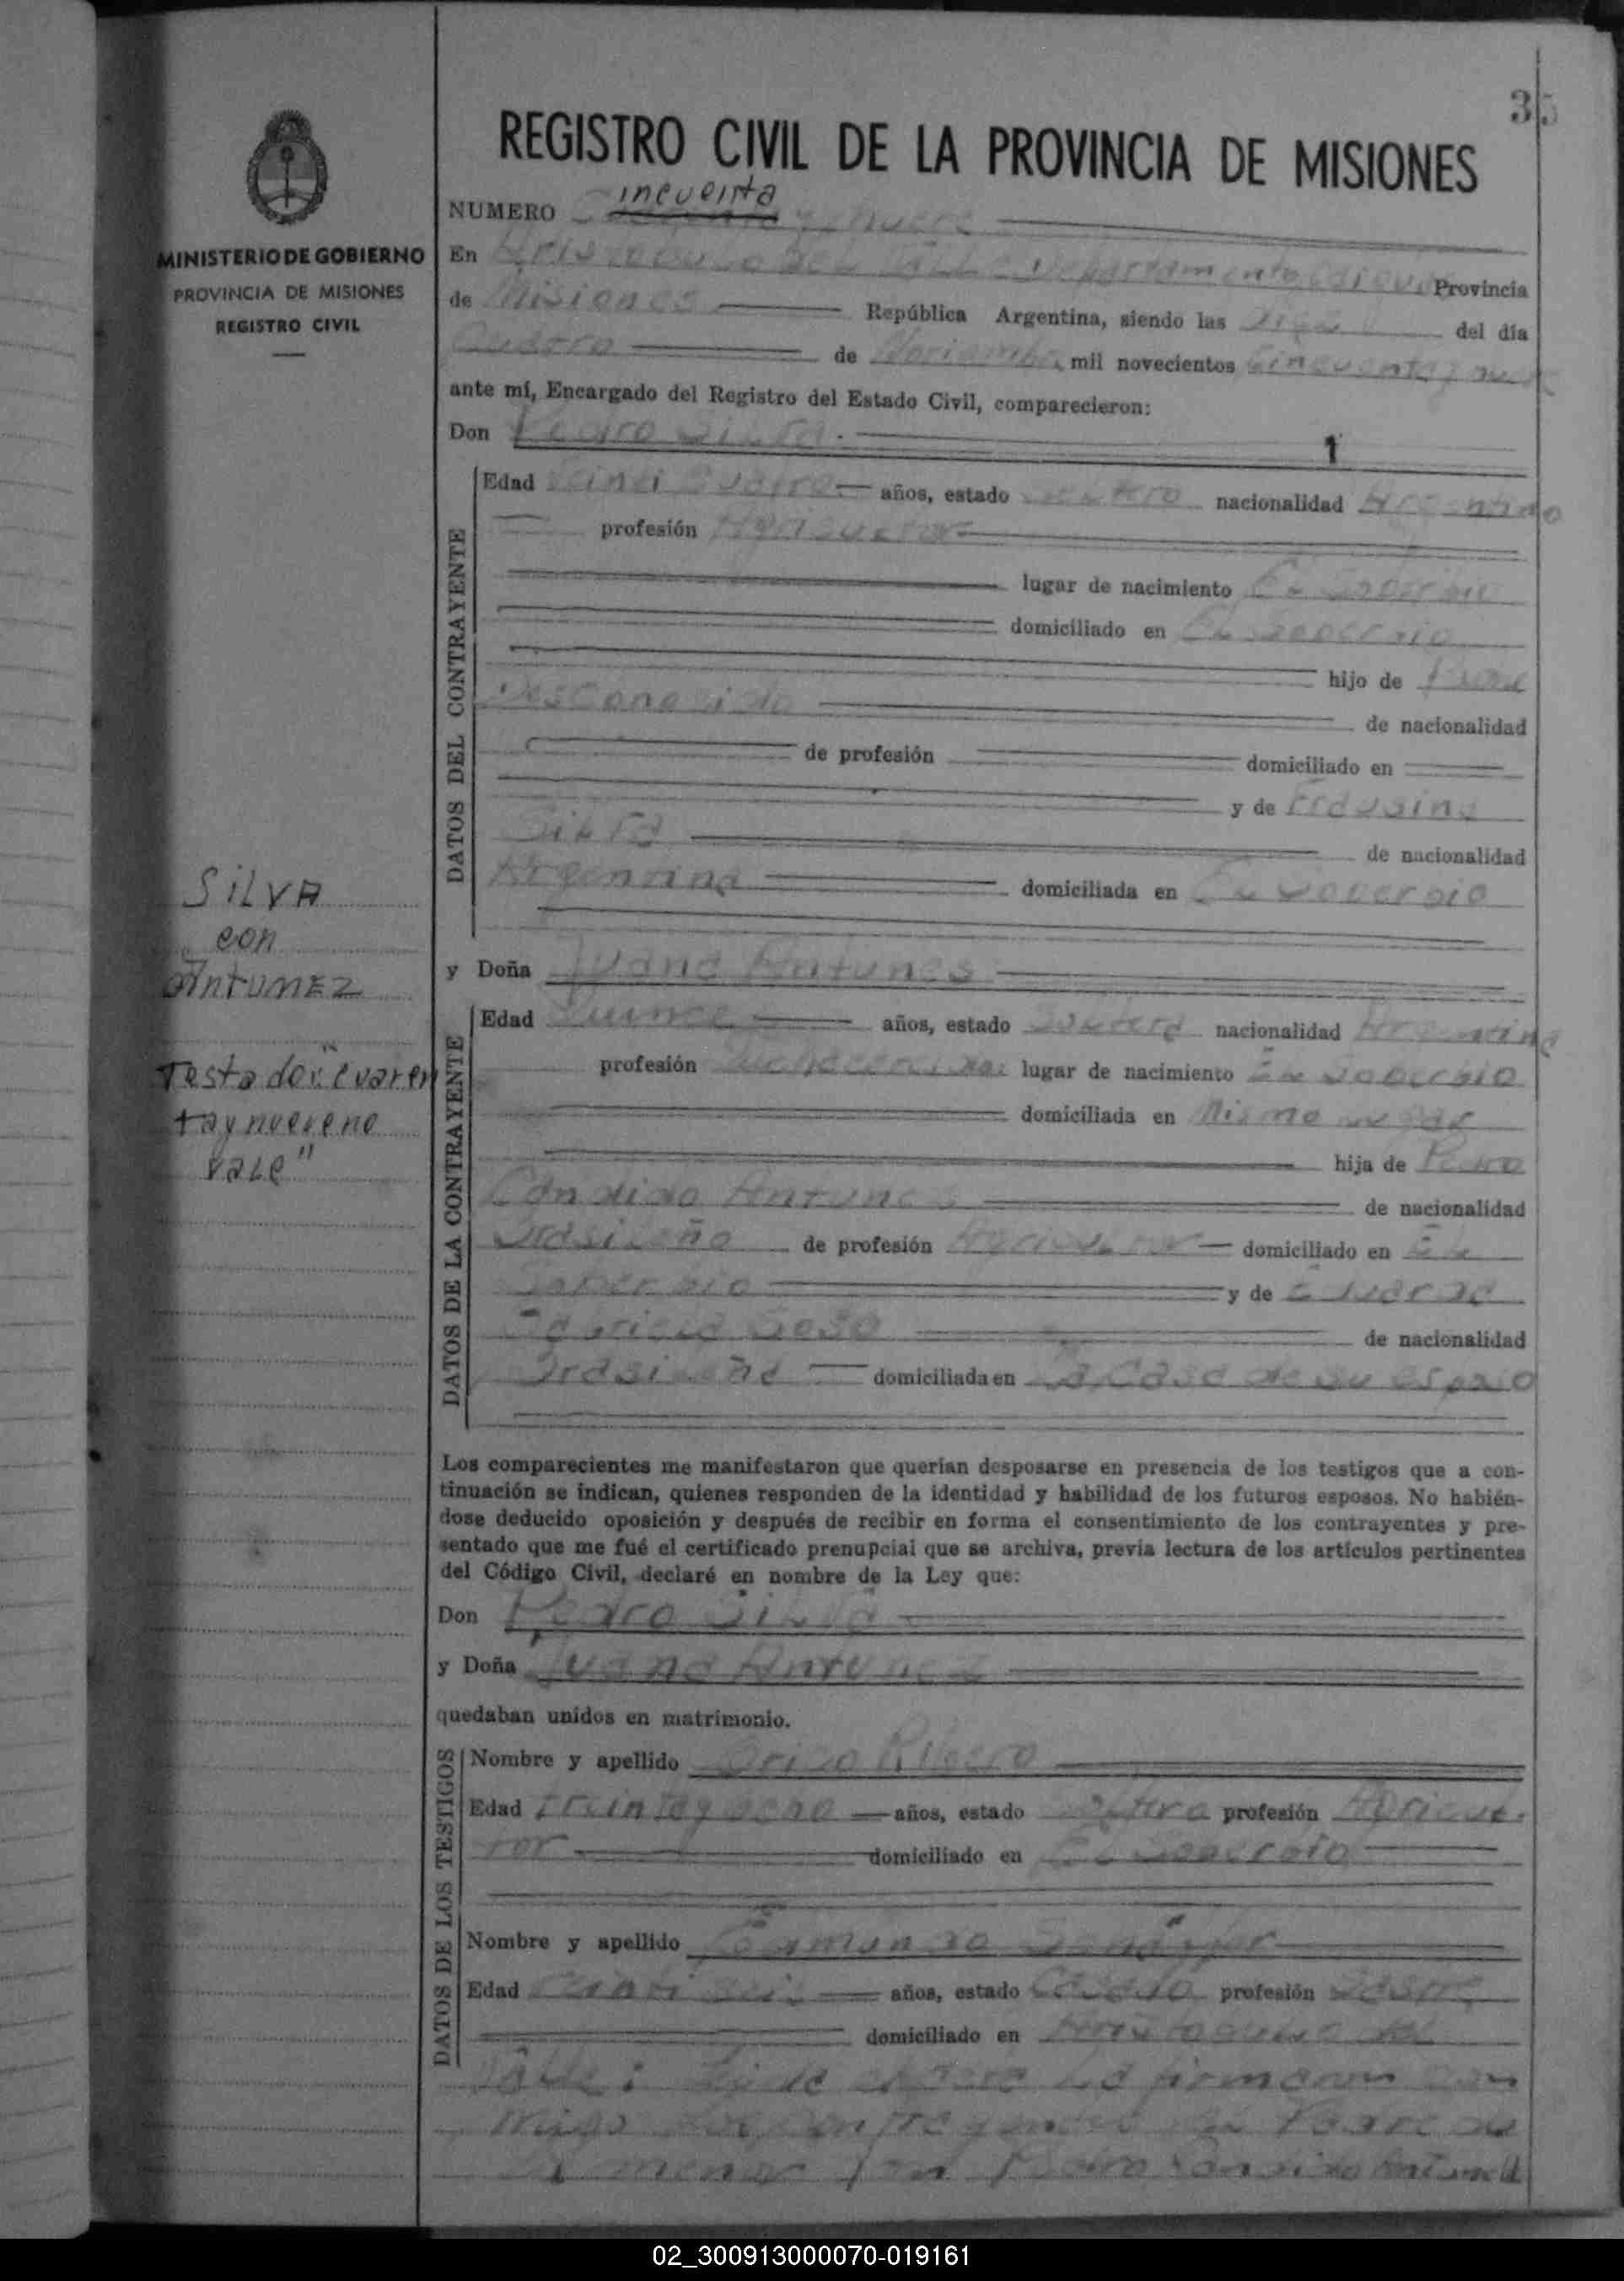 35
REGISTRO CIVIL DE LA PROVINCIA DE MISIONES
incuenta
NUMERO
MINISTERIO DE GOBIERNO
PROVINCIA DE MISIONES
REGISTRO CIVIL
En Aristobulo del Valle Departamento Provincia
de Misiones República Argentina, siendo las del día
Cuatro de Noviembre mil novecientos Cincuenta y
ante mí, Encargado del Registro del Estado Civil, comparecieron:
Don Pedro Silva
1
DATOS DEL CONTRAYENTE
Edad Veinti Cuatro años, estado Soltero nacionalidad Argentino
profesión Agricultor
lugar de nacimiento El Soberbio
domiciliado en El Soberbio
hijo de Padre
Desconosido de nacionalidad
de profesión domiciliado en
y de
Silva de nacionalidad
Argentina domiciliada en El Soberbio
SILVA
con
Antunez
y Doña Juana Antunes
DATOS DE LA CONTRAYENTE
Edad Quince años, estado Soltera nacionalidad Argentina
profesión lugar de nacimiento El Soberbio
domiciliada en Mismo lugar
hija de Pedro
Testado: "Cuaren
ta y nueve no
vale"
Candido Antunes de nacionalidad
Brasileño de profesión Agricultor domiciliado en El
Soberbio y de
de nacionalidad
Brasileña domiciliada en La Casa de su esposo
Los comparecientes me manifestaron que querían desposarse en presencia de los testigos que a con-
tinuación se indican, quienes responden de la identidad y habilidad de los futuros esposos. No habién-
dose deducido oposición y después de recibir en forma el consentimiento de los contrayentes y pre-
sentado que me fué el certificado prenupcial que se archiva, previa lectura de los artículos pertinentes
del Código Civil, declaré en nombre de la Ley que:
Don Pedro Silva
y Doña Juana Antunez
quedaban unidos en matrimonio.
DATOS DE LOS TESTIGOS
Nombre y apellido
Edad treinta y ocho años, estado Soltero profesión Agricul-
tor domiciliado en El Soberbio
Nombre y apellido
Edad años, estado Casado profesión
domiciliado en Aristobulo del
Valle: la firmaron con
migo los Padre de
la menor Don Pedro Candido Antunez
02_300913000070-019161